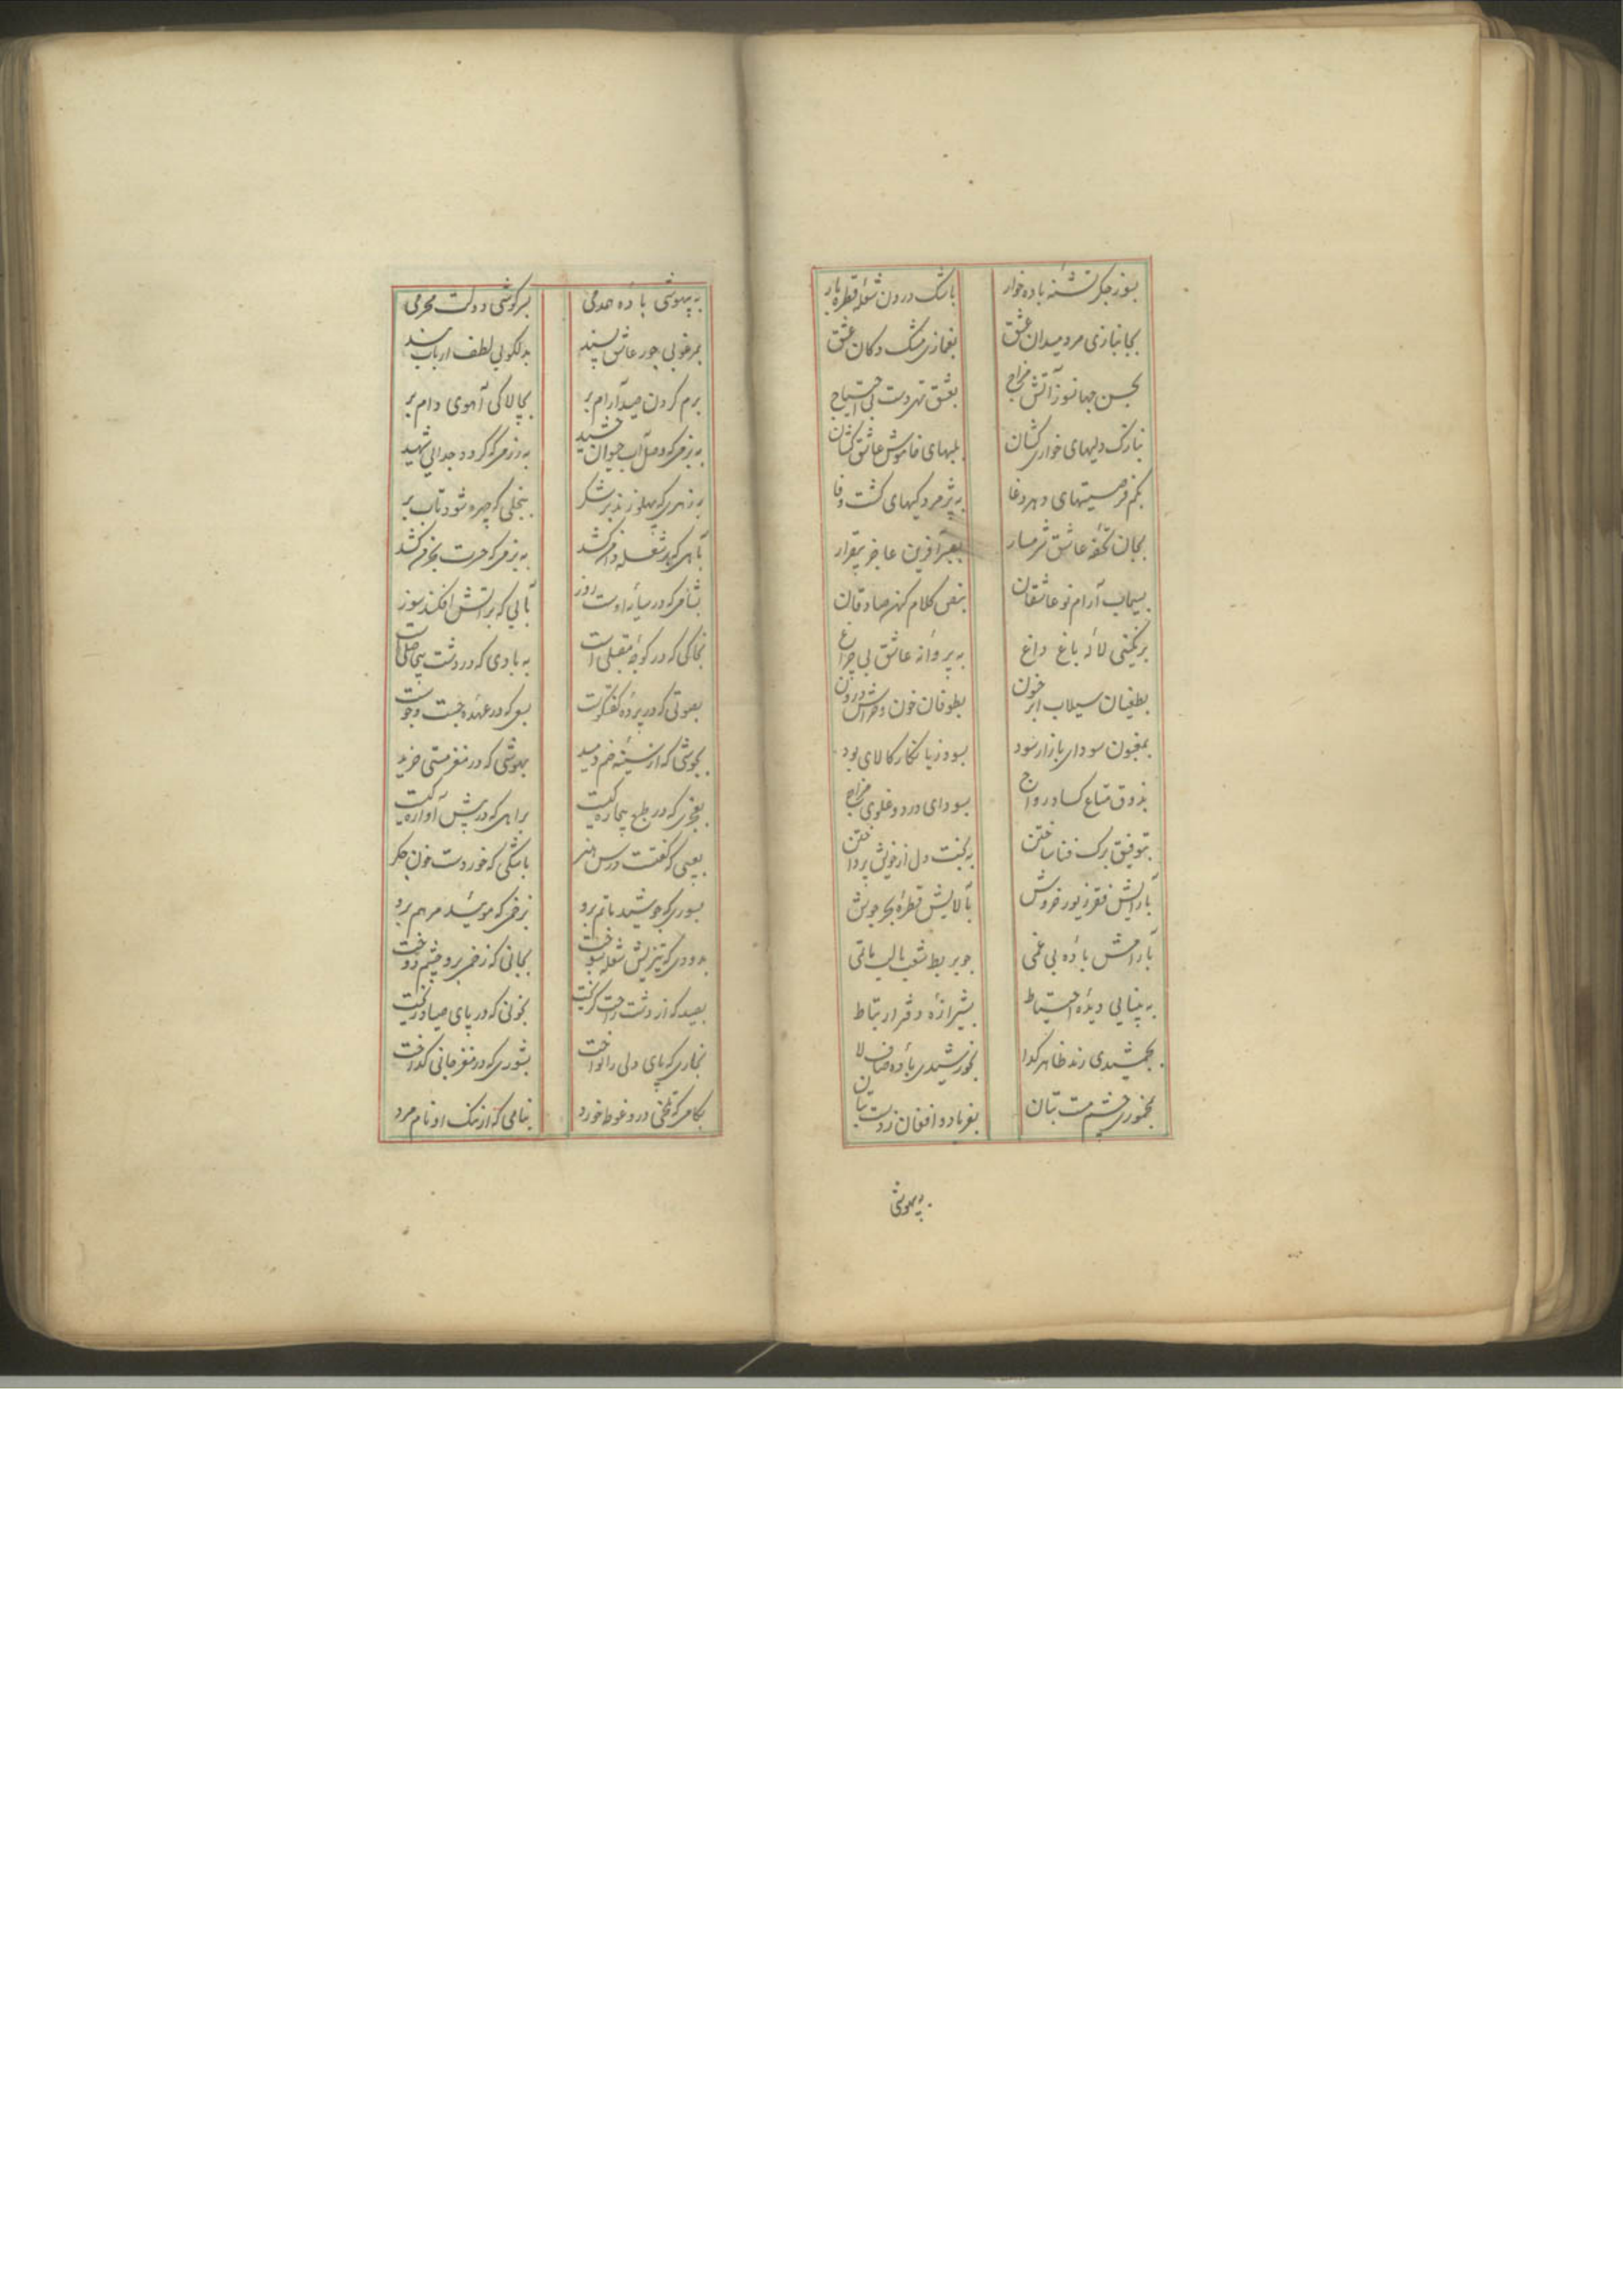 بسوز جکر تشنه باده خوار
باشک درون شعله قطره بار
بجانبازی مرد میدان عشق
بغمازی مشک دکان عشق
بحسن جهانسوز آتش مزاج
بعشق تهی دست بی احتیاج
بنازک دلیهای خواری کشان
بلبهای خاموش عاشق کشان
بکم فرصتیهای دهر دغا
به پژمردکیهای کشت وفا
بجان تحفه عاشق شرمسار
بصبر آفرین عاجز بیقرار
بسیماب آرام نو عاشقان
بنقص کلام کهن صادقان
برنکینی لاله باغ داغ
به پروانه عاشق بی چراغ
بطغیان سیلاب ابر خون
بطوفان خون و خراش درون
بمغبون سودای بازار سود
بسود زیانکار کالای بود
بذوق متاع کساد رواج
بسودای درد و فلوی مزاج
بتوفیق برک فنا ساختن
به کنت دل از خویش پرداختن
بآرایش فقر زیور فروش
بآلایش قطره بحر جوش
بآرامش باده بی غمی
جو بربط شب بالب یاتی
به بینایی دیده احتیاط
بشیرازه دفتر ارتباط
بجمشیدی رند ظاهر کدا
بخورشیدی باده صاف لا
بمخموری چشم مست بتان
بفریاد و افغان زدست بیان
به بیهوشی
به بیهوشی باده همدمی
بسرکوشی دولت محرمی
بمرغوبی جور عاشق پسند
بدلکویی لطف ارباب سند
برم کردن صید آرام بر
بچالاکی آهوی دام بر
به بزمی که وصل آب حیوان چشید
به رزمی که کردد جدایی شهید
به زهری که پهلو زند بر شکر
بنخلی که چهره شود تاب بر
بآهی که بر شعله دامن کشد
به بزمی که حرت بخرمن کشد
بشامی که در سایه اوست روز
بآبی که بر آتش افکند سوز
بخاکی که در کوچه مقبلی است
به بادی که در دشت بیحاصلی است
بصوتی که در پرده کفتکوست
بسعی که در عهده جست وجوست
بجوشی که از سینه خم دمید
بهوشی که در مغز مستی خزید
بعجزی که در طبع بیچاره کیست
براهی که در پیش آواره کیست
بعیبی که کفتت درس هنر
باشکی که خوردست خون جکر
بسوری که جوشید ماتم برو
بزخمی که موئید مرهم برو
بدودی که تیزیش شعله سوخت
بجانی که زخم برو چشم دوخت
بصیدی که از دشت راحت کریخت
بخونی که در پای صیاد ریخت
بخاری که پای دلی را نواخت
بشوری که در مغز جانی کداخت
بکامی که تلخی درو غوطه خورد
بنامی که از ننک او نام مرد